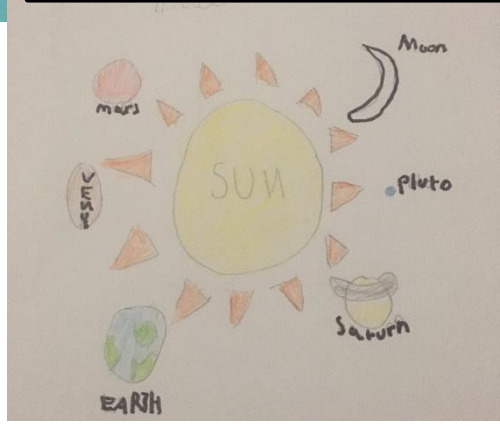 Moon
mars
SUN
Pluto
VENU
Saturn
EARTH